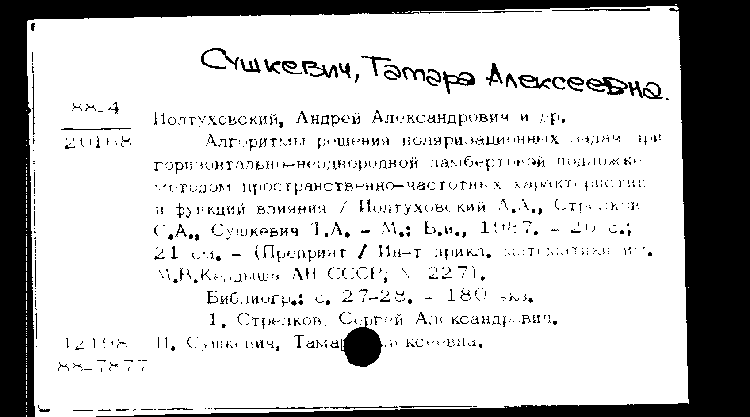 Сушкевич, Тамара Алексеевна.
88-4
20168
Иолтуховский, Андрей Александрович и др.
Алгоритмы решения поляризационных задач при
горизонтально-неоднородной ламбертовой подложке
методом пространственно-частотных характеристик
и функций влияния / Иолтуховский А.А., Стрелков
С.А., Сушкевич Т.А. - М.: Б.и., 1987. - 28 с.;
21 см. - (Препринт / Ин-т прикл. математики им.
М.В.Келдыша АН СССР; № 227).
Библиогр.: с. 27-28. - 180 экз.
1. Стрелков, Сергей Александрович.
12198 П. Сушкевич, Тамара Алексеевна.
88-7877